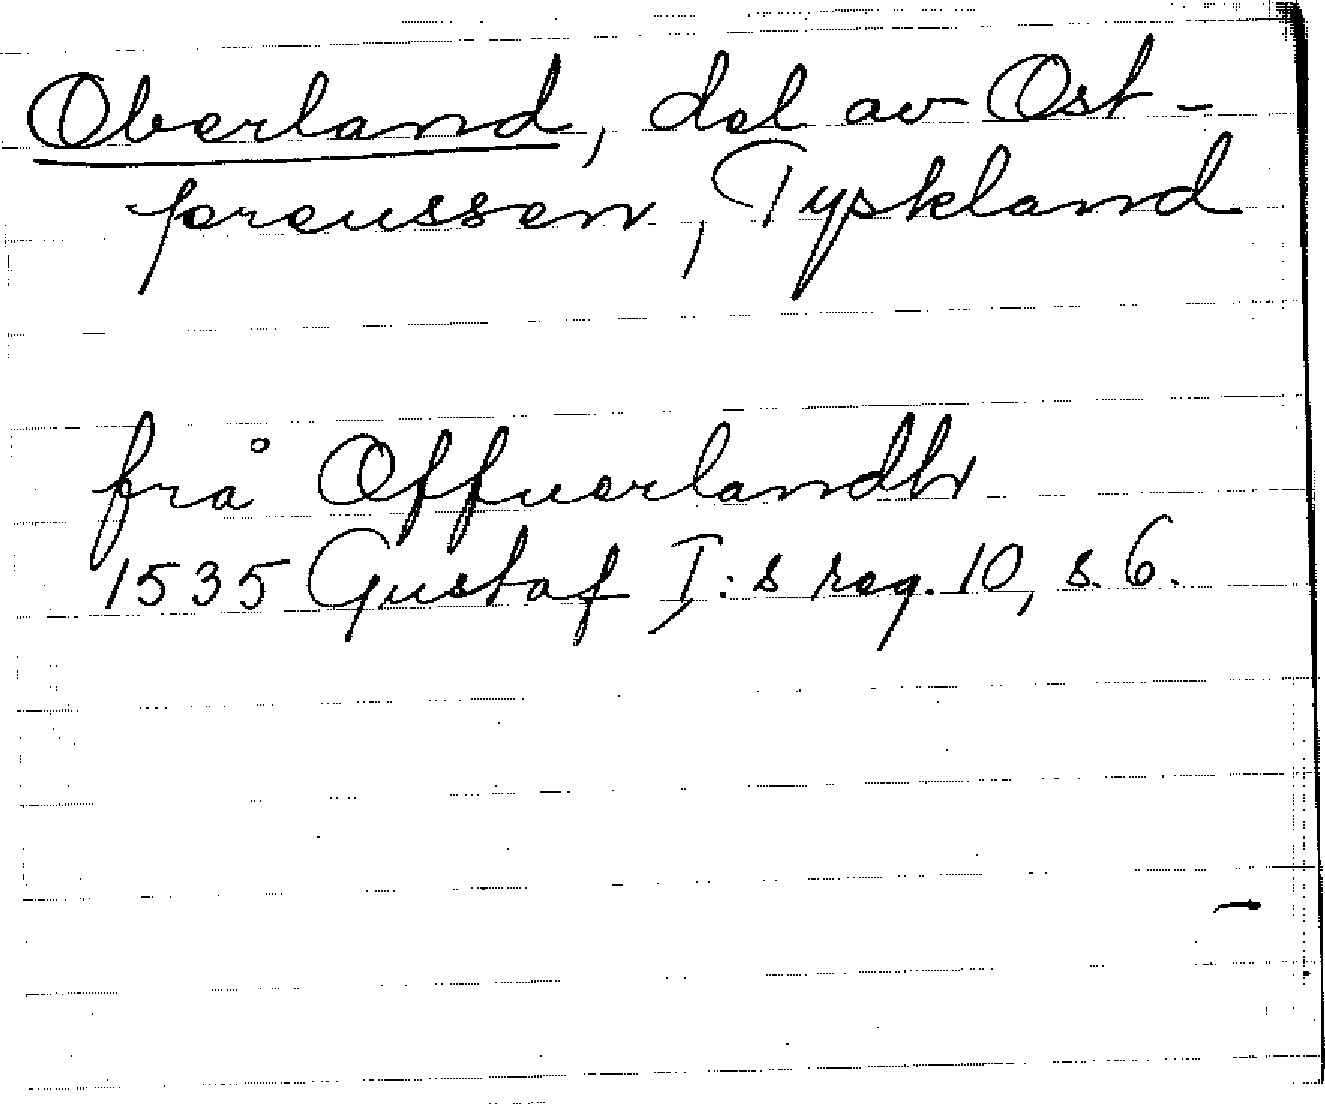 Oberland, del av Ost-
preussen, Tyskland
frå Offuerlandh
1535 Gustaf I:s reg. 10, s. 6.